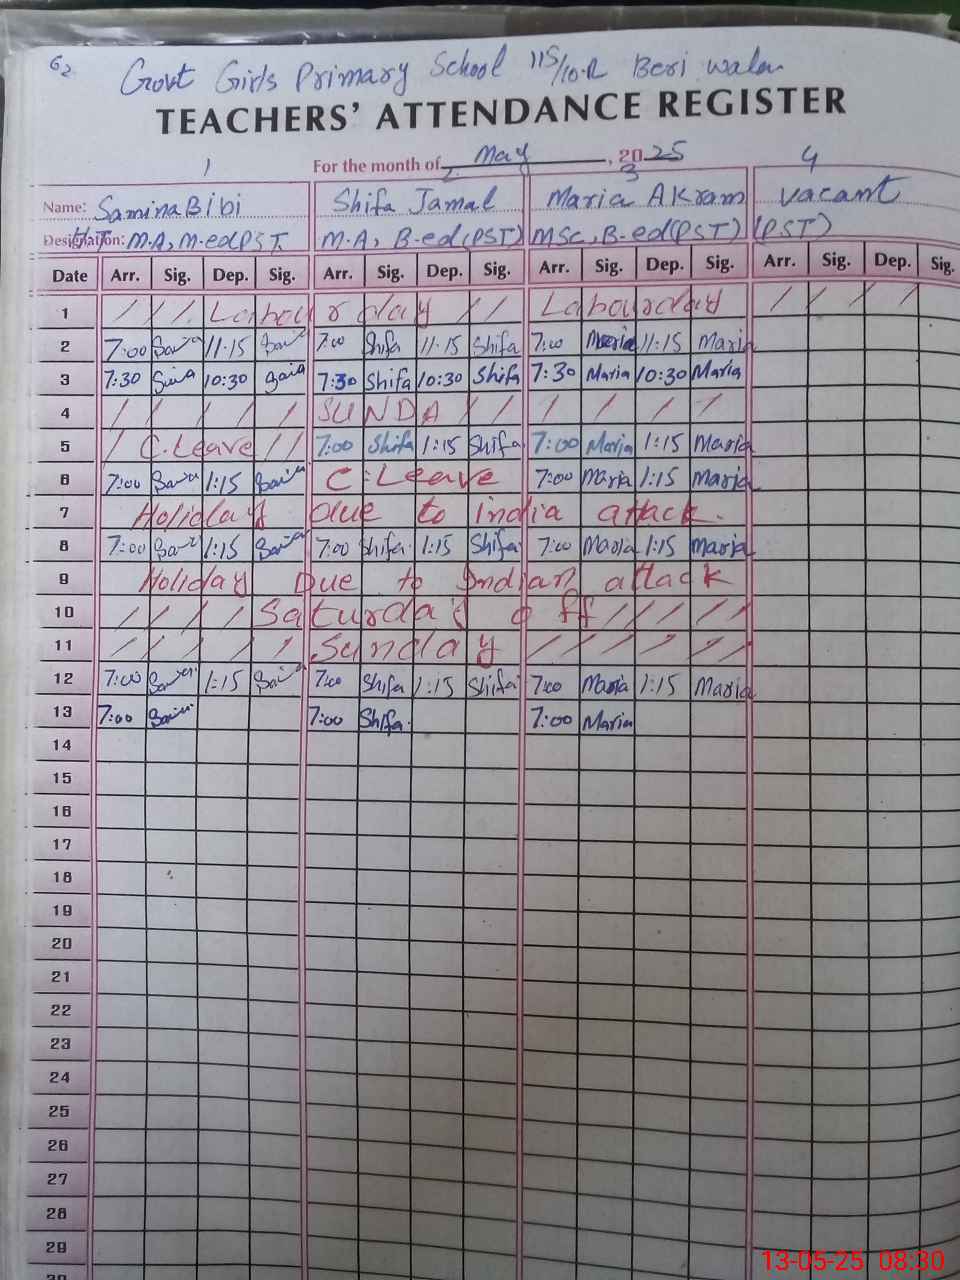 62
Govt Girls Primary School 115/10-R Beri wala
TEACHERS' ATTENDANCE REGISTER
For the month of May, 2025
1 2 3 4
Name: Samina Bibi Shifa Jamal Maria Akram vacant
Designation: M.A, M-ed PST M.A, B-ed (PST) MSc, B-ed (PST) (PST)
Date Arr. Sig. Dep. Sig. Arr. Sig. Dep. Sig. Arr. Sig. Dep. Sig. Arr. Sig. Dep. Sig.
1 / / / Labour day / / Labourday / / / /
2 7:00 11:15 7:00 Shifa 11:15 Shifa 7:00 Maria 11:15 Maria
3 7:30 10:30 7:30 Shifa 10:30 Shifa 7:30 Maria 10:30 Maria
4 / / / / / SUNDA / / / / / /
5 / C.Leave / / 7:00 Shifa 1:15 Shifa 7:00 Maria 1:15 Maria
6 7:00 1:15 C.Leave 7:00 Maria 1:15 Maria
7 Holiday due to india attack.
8 7:00 1:15 7:00 Shifa 1:15 Shifa 7:00 Maria 1:15 Maria
9 Holiday Due to Indian attack
10 / / / / Saturday off / / / / /
11 / / / / / Sunday / / / / / /
12 7:00 1:15 7:00 Shifa 1:15 Shifa 7:00 Maria 1:15 Maria
13 7:00 7:00 Shifa 7:00 Maria
14
15
16
17
18
19
20
21
22
23
24
25
26
27
28
29
30
13-05-25 08:30